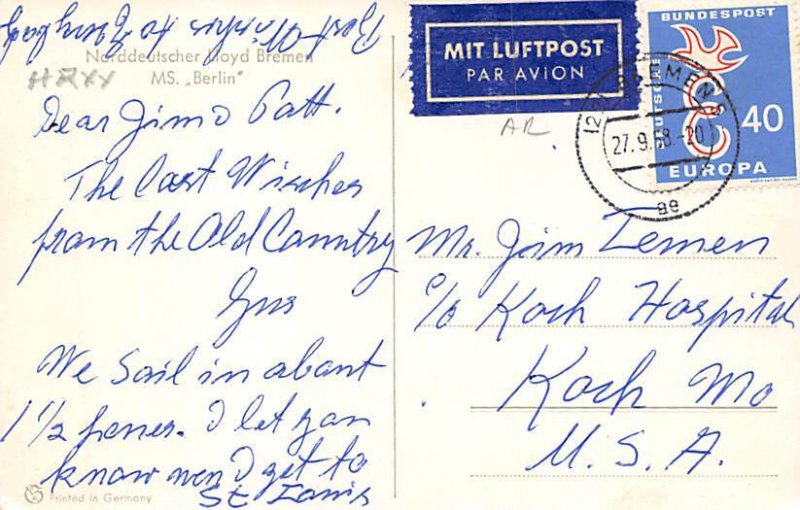 Best Wishes to Everybody
Norddeutscher Lloyd Bremen
MS. „Berlin"
Dear Jim
The Last Wisches
from the Old Country
Gus
We Sail in about
1 1/2 hones. I let you
know wen I get to
St Louis
Printed in Germany
MIT LUFTPOST
PAR AVION
AR
BUNDESPOST
DEUTSCHE
40
EUROPA
BREMEN 5
27.9.58.-20
ae
Mr. Jim Lemen
c/o Koch Hospital
Koch Mo
U. S. A.